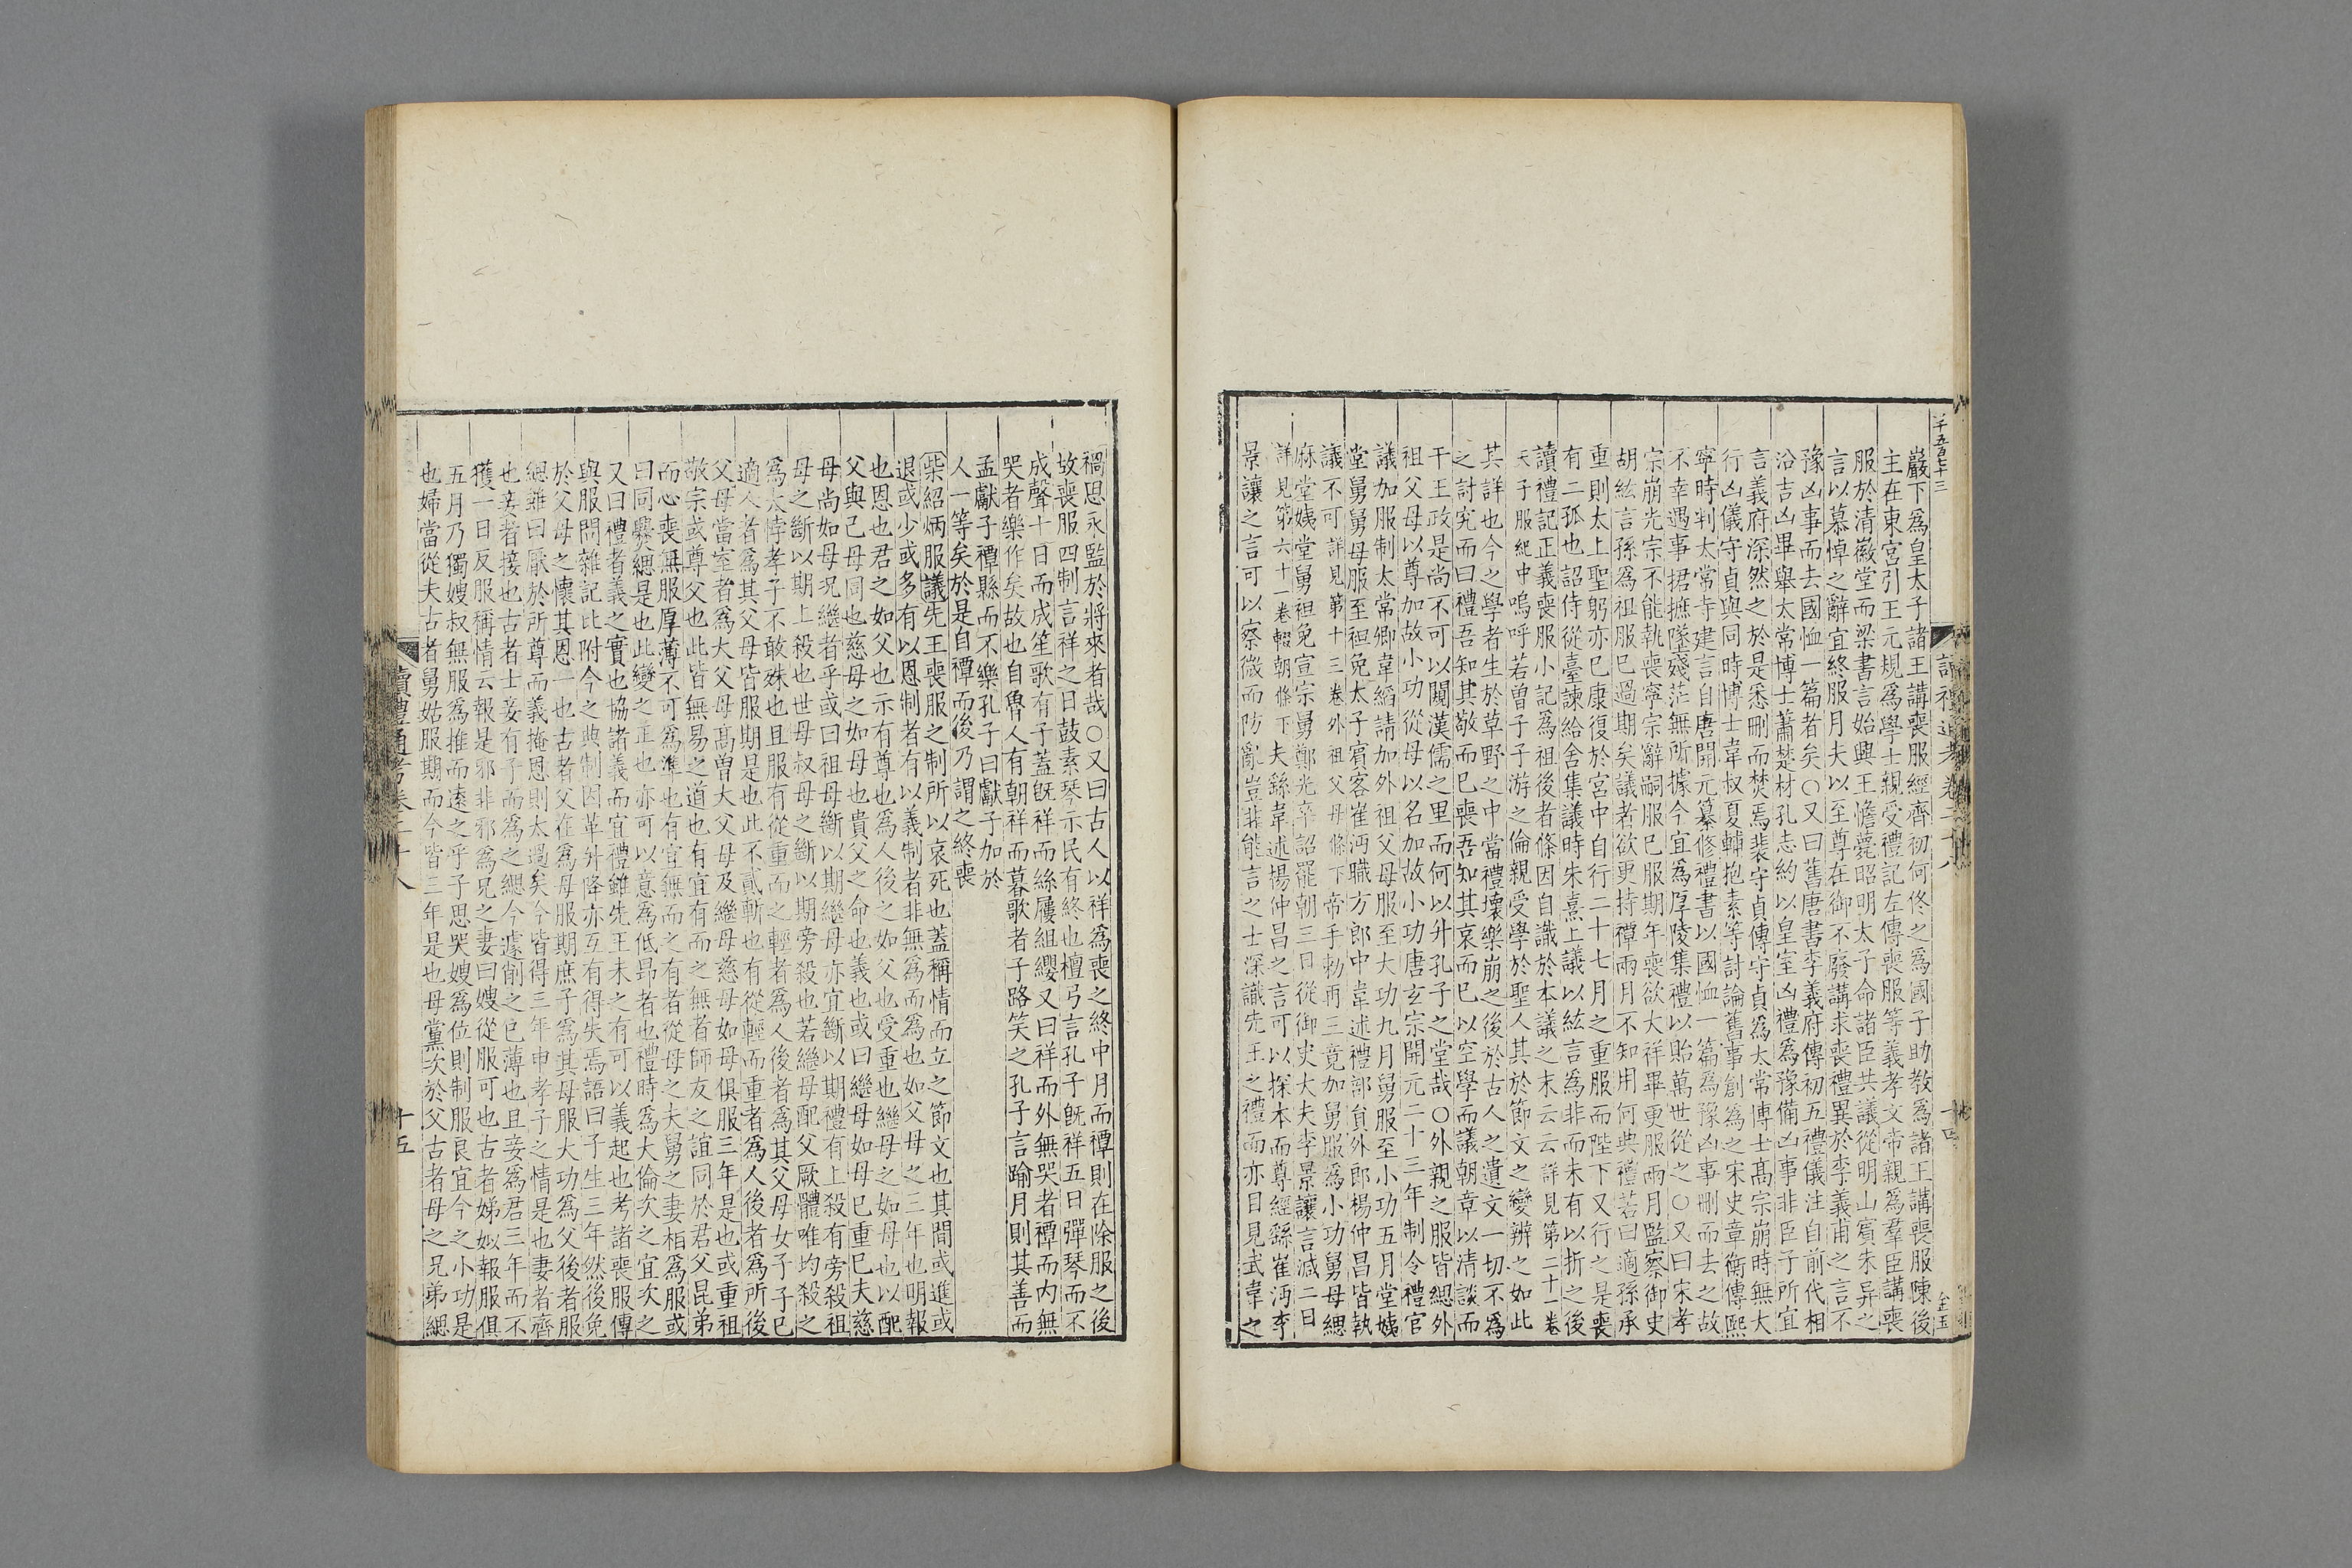 巖下爲皇太子諸王講喪服經齊初何佟之爲國子助教爲諸王講喪服陳後
主在東宮引王元規爲學士親受禮記左傳喪服等義孝文帝親爲羣臣講喪
服於清徽堂而梁書言始興王憺薨昭明太子命諸臣共議從明山賓朱异之
言以慕悼之辭宜終服月夫以至尊在御不廢講求喪禮異於李義甫之言不
豫凶事而去國恤一篇者矣○又曰舊唐書李義府傳初五禮儀注自前代相
沿吉凶畢舉大常博士蕭楚材孔志約以皇室凶禮爲豫備凶事非臣子所宜
言義府深然之於是悉刪而焚焉裴守貞傳守貞爲太常博士髙宗崩時無大
行凶儀守貞與同時博士韋叔夏輔抱素等討論舊事創爲之宋史章衡傳熙
寧時判太常寺建言自唐開元纂修禮書以國恤一篇爲豫凶事刪而去之故
不幸遇事捃摭墜殘茫無所據今宜爲厚陵集禮以貽萬世從之○又曰宋孝
宗崩光宗不能執喪寧宗辭嗣服巳服期年喪欲大祥畢更服兩月監察御史
胡紘言孫爲祖服巳過期矣議者欲更持禫兩月不知用何典禮若曰適孫承
重則太上聖躬亦巳康復於宮中自行二十七月之重服而陛下又行之是喪
有二孤也詔侍從臺諫給舍集議時朱熹上議以紘言爲非而未有以折之後
讀禮記正義喪服小記爲祖後者條因自識於本議之末云云詳見第二十一卷
天子服紀中嗚呼若曾子子游之倫親受學於聖人其於節文之變辨之如此
其詳也今之學者生於草野之中當禮壞樂崩之後於古人之遺文一切不爲
之討究而曰禮吾知其敬而已喪吾知其哀而已以空學而議朝章以清談而
干王政是尚不可以闚漢儒之里而何以升孔子之堂哉○外親之服皆緦外
祖父母以尊加故小功從母以名加故小功唐玄宗開元二十三年制令禮官
議加服制太常卿韋縚請加外祖父母服至大功九月舅服至小功五月堂姨
堂舅舅母服至袒免太子賓客崔沔職方郎中韋述禮部員外郎楊仲昌皆執
議不可詳見第十三卷外祖父母條下帝手勅再三竟加舅服爲小功舅母緦
麻堂姨堂舅袒免宣宗舅鄭光卒詔罷朝三日從御史大夫李景讓言減二日
詳見第六十一卷輟朝條下夫繇韋述楊仲昌之言可以探本而尊經繇崔沔李
景讓之言可以察微而防亂豈非能言之士深識先王之禮而亦日見武韋之
禍思永監於將來者哉○又曰古人以祥爲喪之終中月而禫則在除服之後
故喪服四制言祥之日鼓素琴示民有終也檀弓言孔子旣祥五日彈琴而不
成聲十日而成笙歌有子蓋旣祥而絲屨組纓又曰祥而外無哭者禫而內無
哭者樂作矣故也自魯人有朝祥而暮歌者子路笑之孔子言踰月則其善而
孟獻子禫縣而不樂孔子曰獻子加於
人一等矣於是自禫而後乃謂之終喪
柴紹炳服議先王喪服之制所以哀死也蓋稱情而立之節文也其間或進或
退或少或多有以恩制者有以義制者非無爲而爲也如父母之三年也明報
也恩也君之如父也示有尊也爲人後之如父也受重也繼母之如母也以配
父與己母同也慈母之如母也貴父之命也義也或曰繼母如母巳重巳夫慈
母尚如母况繼者乎或曰祖母斷以期繼母亦宜斷以期禮有上殺有旁殺祖
母之斷以期上殺也世母叔母之斷以期旁殺也若繼母配父厥體唯均殺之
爲太悖孝子不敢殊也且服有從重而之輕者爲人後者爲其父母女子子已
適人者爲其父母皆服期是也此不貳斬也有從輕而重者爲人後者爲所後
父母當室者爲大父母髙曾大父母及繼母慈母如母俱服三年是也或重祖
敬宗或尊父也此皆無易之道也有宜有而之無者師友之誼同於君父昆弟
而心喪無服厚薄不可爲準也有宜無而之有者從母之夫舅之妻相爲服或
曰同爨緦是也此變之正也亦可以意爲低昻者也禮時爲大倫次之宜次之
又曰禮者義之實也協諸義而宜禮雖先王未之有可以義起也考諸喪服傳
與服問雜記比附今之典制因革升降亦互有得失焉語曰子生三年然後免
於父母之懷其恩一也古者父在爲母服期庶子爲其母服大功爲父後者服
緦雖曰厭於所尊而義掩恩則太過矣今皆得三年申孝子之情是也妻者齊
也妾者接也古者士妾有子而爲之緦今遽削之已薄也且妾爲君三年而不
獲一日反服稱情云報是邪非邪爲兄之妻曰嫂從服可也古者娣姒報服俱
五月乃獨嫂叔無服爲推而遠之乎子思哭嫂爲位則制服良宜今之小功是
也婦當從夫古者舅姑服期而今皆三年是也母黨次於父古者母之兄弟緦
讀禮通考卷二十八
十五